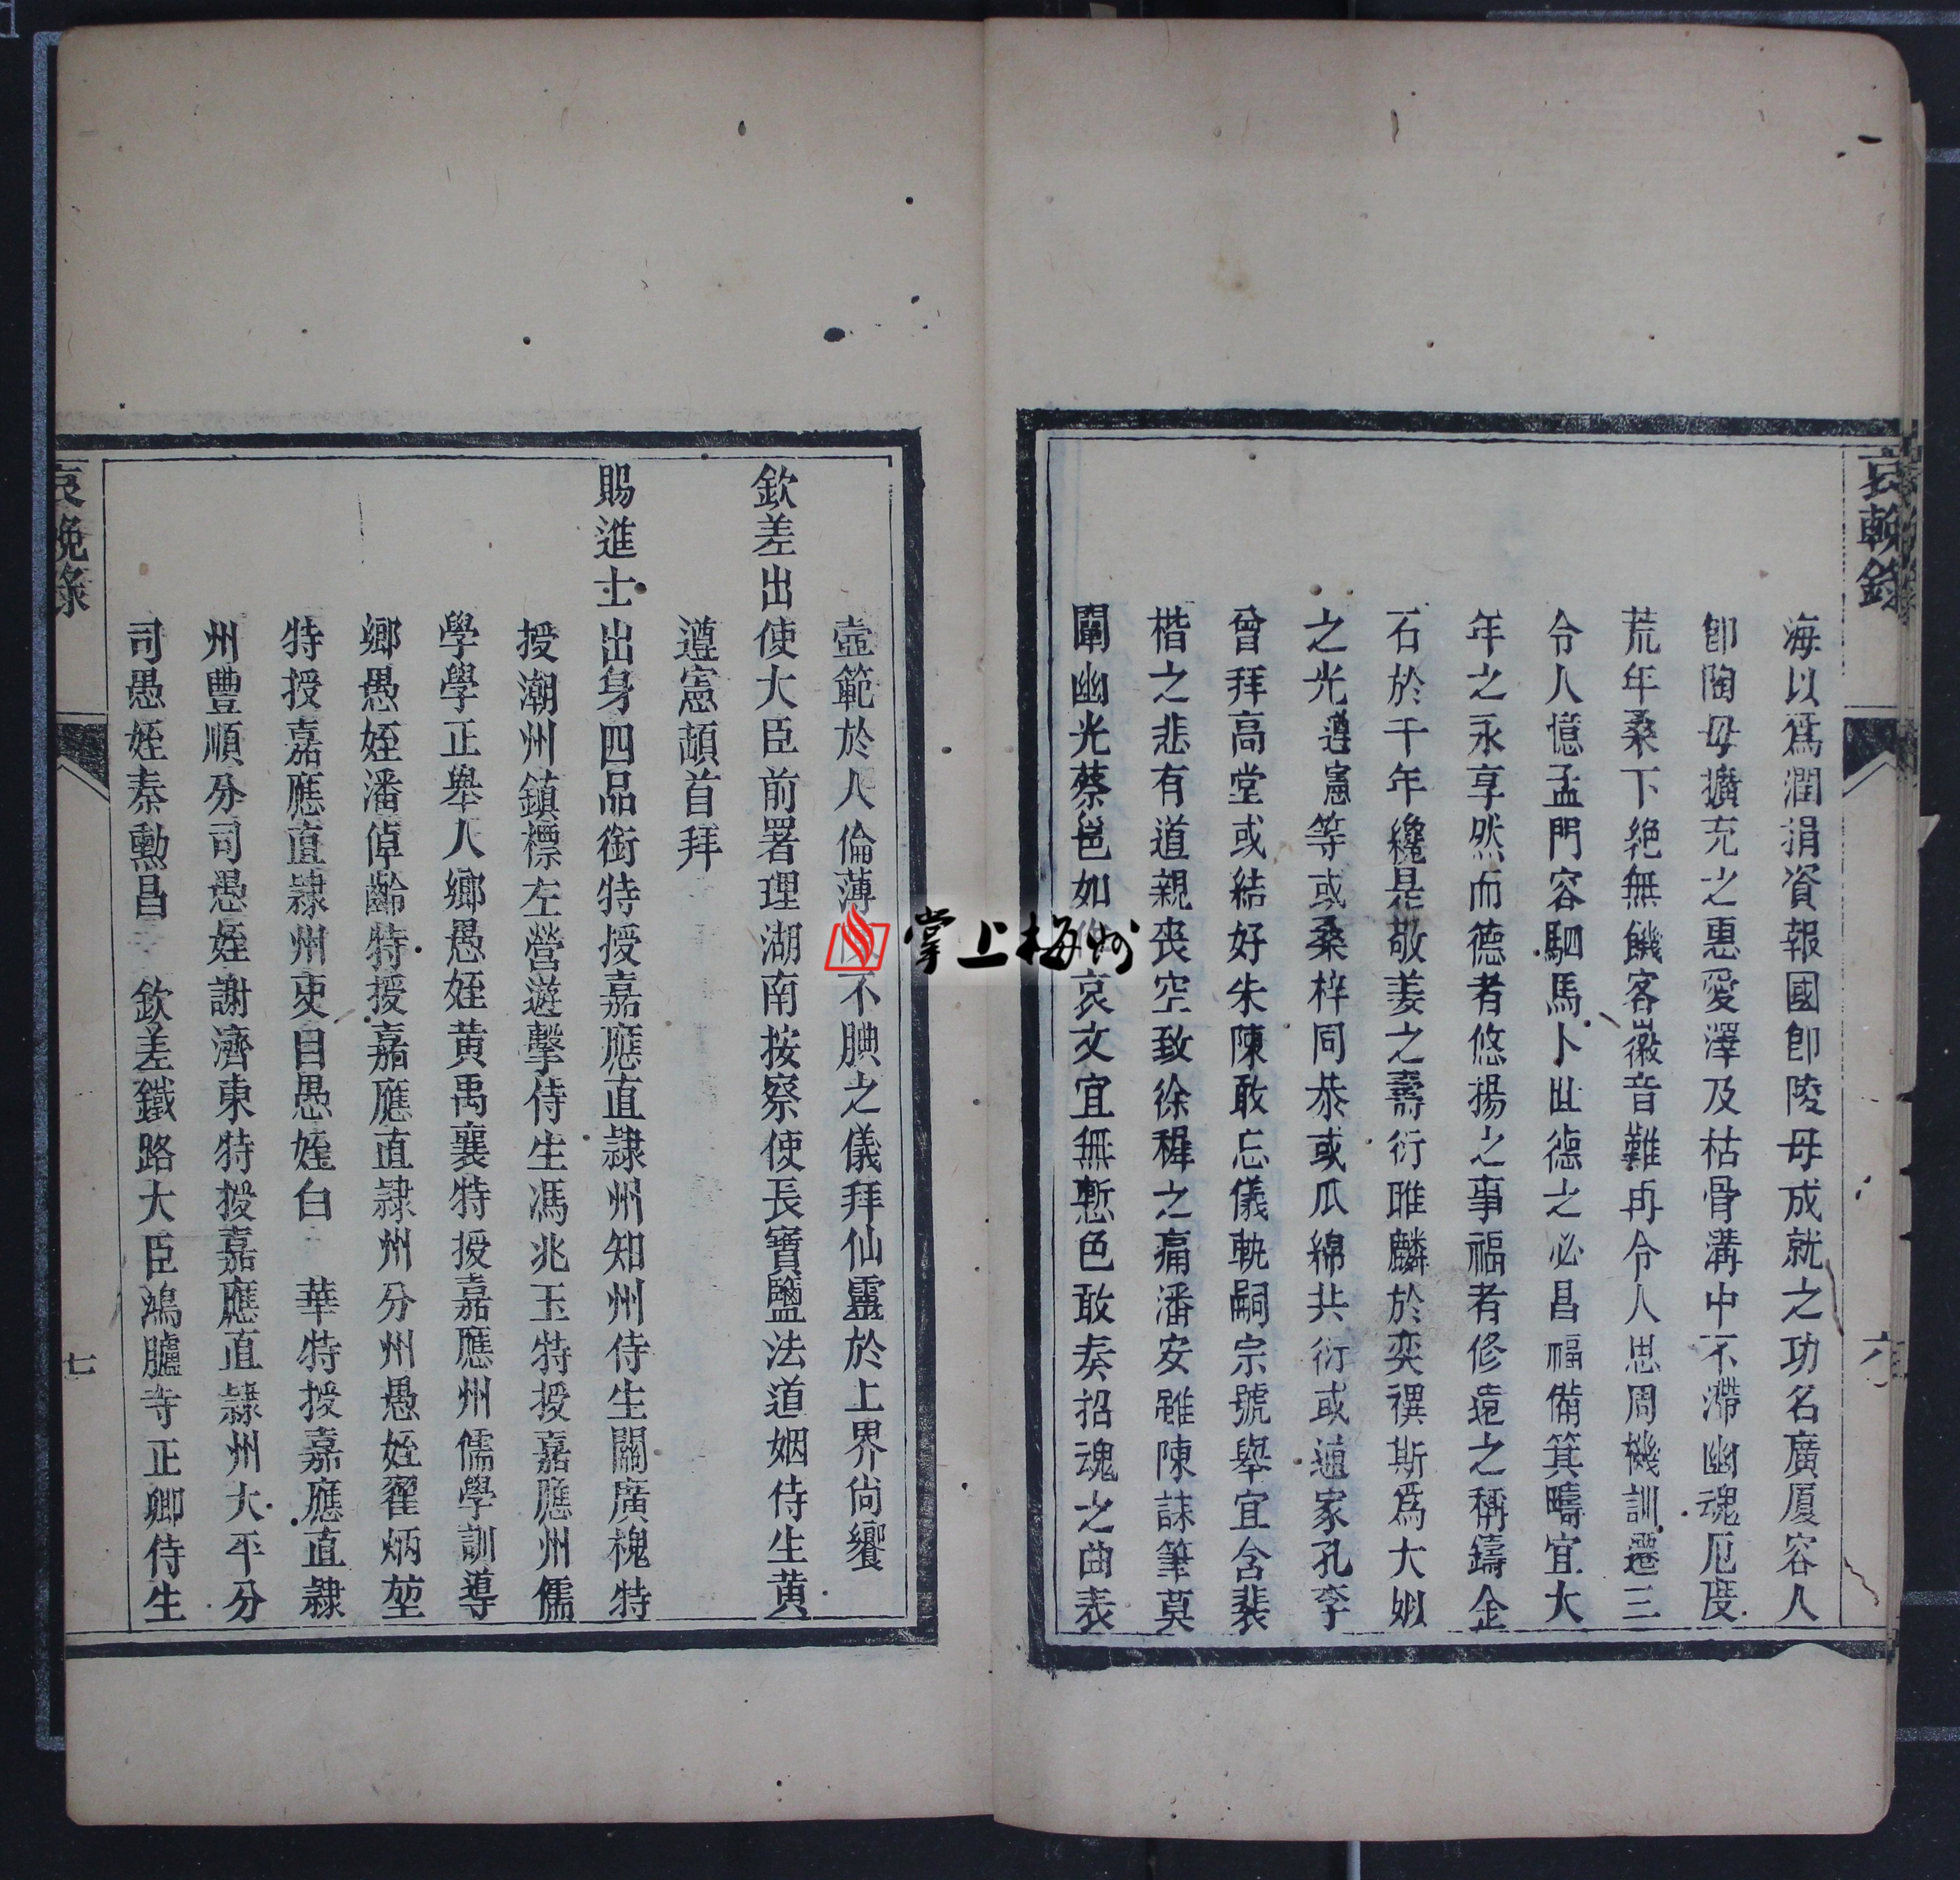 哀輓錄
六
海以爲潤捐資報國卽陵母成就之功名廣厦容人
卽陶母擴充之惠愛澤及枯骨溝中不滯幽魂厄度
荒年桑下絶無饑客徽音難再令人思周機訓遷三
令人憶孟門容駟馬卜世德之必昌福備箕疇宜大
年之永享然而德者悠揚之事福者修遠之稱鑄金
石於千年纔是敬姜之壽衍雎麟於奕禩斯爲大姒
之光遵憲等或桑梓同恭或瓜綿共衍或通家孔李
曾拜高堂或結好朱陳敢忘儀軌嗣宗號舉宜含裴
楷之悲有道親喪空致徐穉之痛潘安雖陳誄筆莫
闡幽光蔡邕如作哀文宜無慙色敢奏招魂之曲表
壼範於人倫薄不腆之儀拜仙靈於上界尙饗
欽差出使大臣前署理湖南按察使長寶鹽法道姻侍生黃
遵憲頓首拜
賜進士出身四品銜特授嘉應直隷州知州侍生關廣槐特
授潮州鎮標左營遊擊侍生馮兆玉特授嘉應州儒
學學正舉人鄉愚姪黃禹襄特授嘉應州儒學訓導
鄉愚姪潘倬齡特授嘉應直隷州分州愚姪翟炳堃
特授嘉應直隷州吏目愚姪白 華特授嘉應直隷
州豐順分司愚姪謝濟東特授嘉應直隷州大平分
司愚姪秦勳昌 欽差鐵路大臣鴻臚寺正卿侍生
哀輓錄
七
掌上梅州